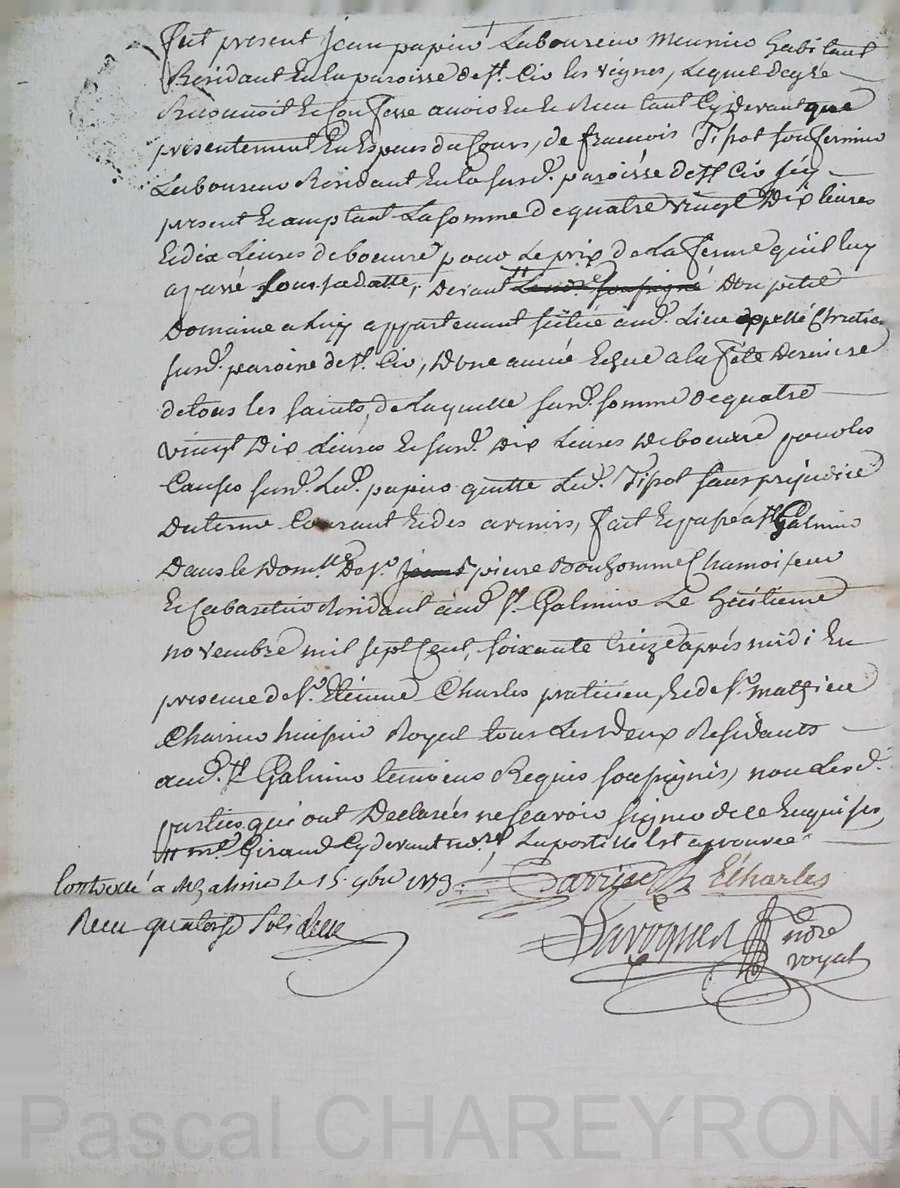 fut present jean papin Laboureur meunier habitant
Residant en la paroisse de St. Cir les vignes, Lequel de gré
Reconnoit et confesse avoir eu et Receu tant Cy devant que
presentement en Especes du Cours, de francois Tipot son fermier
Laboureur Residant en la susd. paroisse de St Cir icy
present Ecceptant La somme de quatre vingt Dix livres
et dix Livres de boeurre pour Le prix de La ferme qu'il luy
a passé sous sa datte, devant Led. soussigné D'un petit
Domaine a luy appartenant scitué aud. Lieu appellé
susd. paroisse de St. Cir, D'une année Echue a la fête Derniere
de tous les saints, de Laquelle susd. somme de quatre
vingt Dix Livres et susd. Dix Livres De boeurre pour les
Causes susd. Led. papin quitte Led. Tipot sans prejudice
Du terme Courant et des avenirs, fait et passé a St Galmier
Dans le Domlle De Sr. jean pierre Bonhomme Chamoiseur
et Cabaretier Residant aud. St. Galmier Le huitieme
novembre mil sept Cent, soixante treize après midi En
presence de Sr. Etienne Charles praticien, et de Sr. mathieu
huissier Royal tous Les deux Residants
aud. St Galmier temoins Requis soussignés, non Les d.
parties qui ont Declarées ne scavoir signer de ce Enquises
me. Giraud Cy devant nore. La postille Est aprouvée
Controllé a St Galmier le 15. 9bre 1773. ECharles
Receu quatorze sols nore
royal